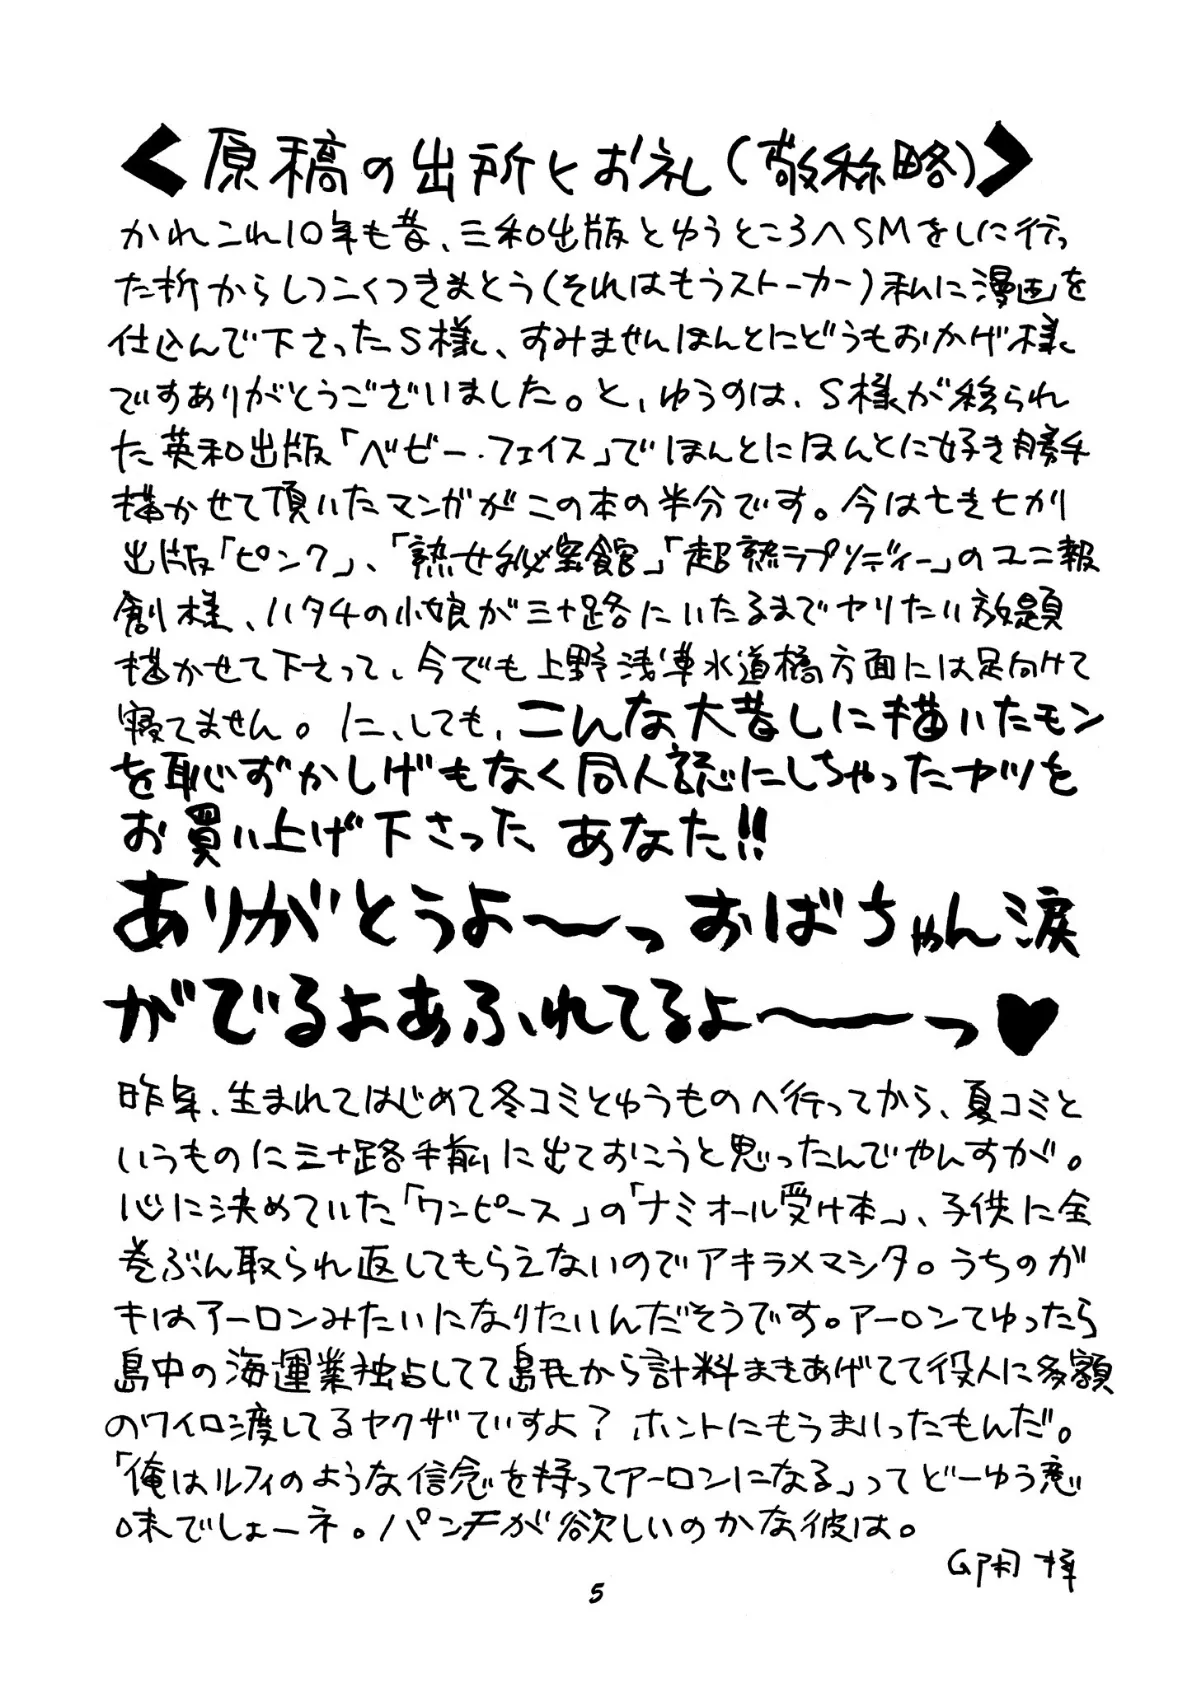 <原稿の出所とお礼(敬称略)>
かれこれ10年も昔、三和出版とゆうところへSMをしに行っ
た折からしつこくつきまとう(それはもうストーカー)私に漫画を
仕込んで下さったS様、すみませんほんとにどうもおかげ様
ですありがとうございました。と、ゆうのは、S様が移られ
た英和出版「ベビー・フェイス」でほんとにほんとに好き勝手
描かせて頂いたマンガがこの本の半分です。今は亡き七かり
出版「ピンク」、「熟女秘宝館」「超熟ラプソディー」のユニ報
創様、ハタチの小娘が三十路にいたるまでヤリたい放題
描かせて下さって、今でも上野浅草水道橋方面には足向けて
寝てません。に、しても、こんな大昔しに描いたモン
を恥ずかしげもなく同人誌にしちゃったヤツを
お買い上げ下さった あなた!!
ありがとうよ〜っおばちゃん涙
がでるよあふれてるよ〜っ♥
昨年、生まれてはじめて冬コミとゆうものへ行ってから、夏コミと
いうものに三十路手前に出ておこうと思ったんでやんすが。
心に決めていた「ワンピース」の「ナミオール受け本」、子供に全
巻ぶん取られ返してもらえないのでアキラメマシタ。うちのガ
キはアーロンみたいになりたいんだそうです。アーロンてゆったら
島中の海運業独占してて島民から計料まきあげてて役人に多額
のワイロ渡してるヤクザですよ?ホントにもうまいったもんだ。
「俺はルフィのような信念を持ってアーロンになる」ってどーゆう意
味でしょーネ。パンチが欲しいのかな彼は。
5